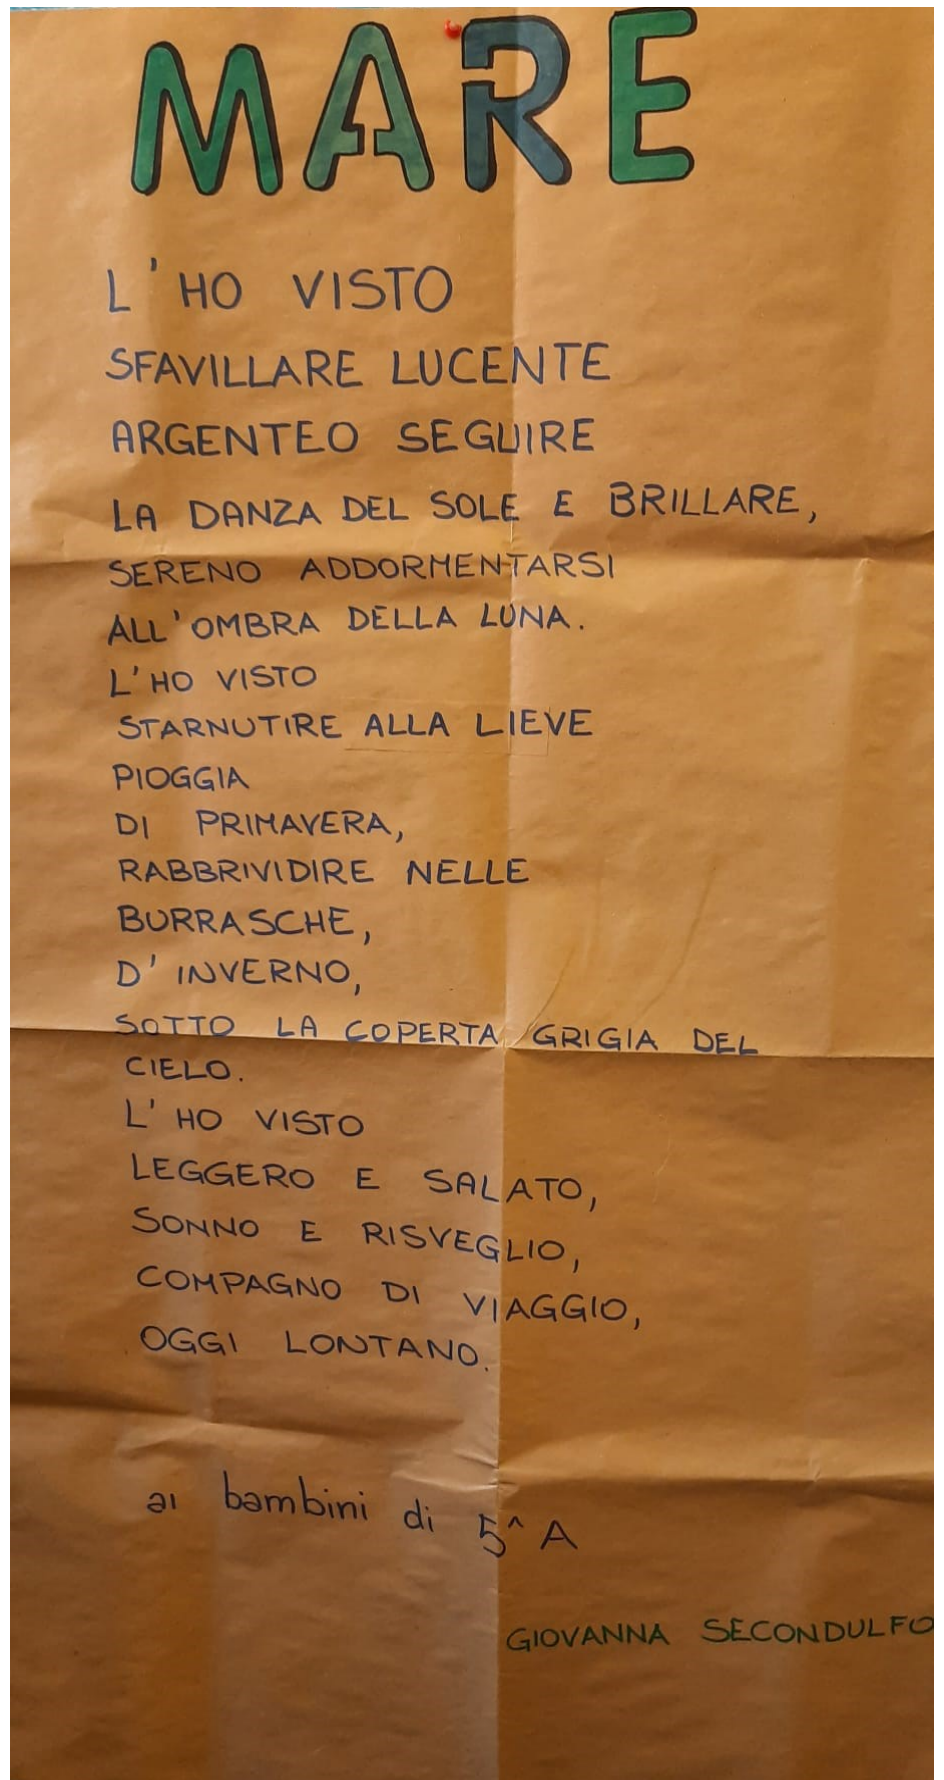 MARE
L'HO VISTO
SFAVILLARE LUCENTE
ARGENTEO SEGUIRE
LA DANZA DEL SOLE E BRILLARE,
SERENO ADDORMENTARSI
ALL'OMBRA DELLA LUNA.
L'HO VISTO
STARNUTIRE ALLA LIEVE
PIOGGIA
DI PRIMAVERA,
RABBRIVIDIRE NELLE
BURRASCHE,
D'INVERNO,
SOTTO LA COPERTA GRIGIA DEL
CIELO.
L'HO VISTO
LEGGERO E SALATO,
SONNO E RISVEGLIO,
COMPAGNO DI VIAGGIO,
OGGI LONTANO.
ai bambini di 5^ A
GIOVANNA SECONDULFO